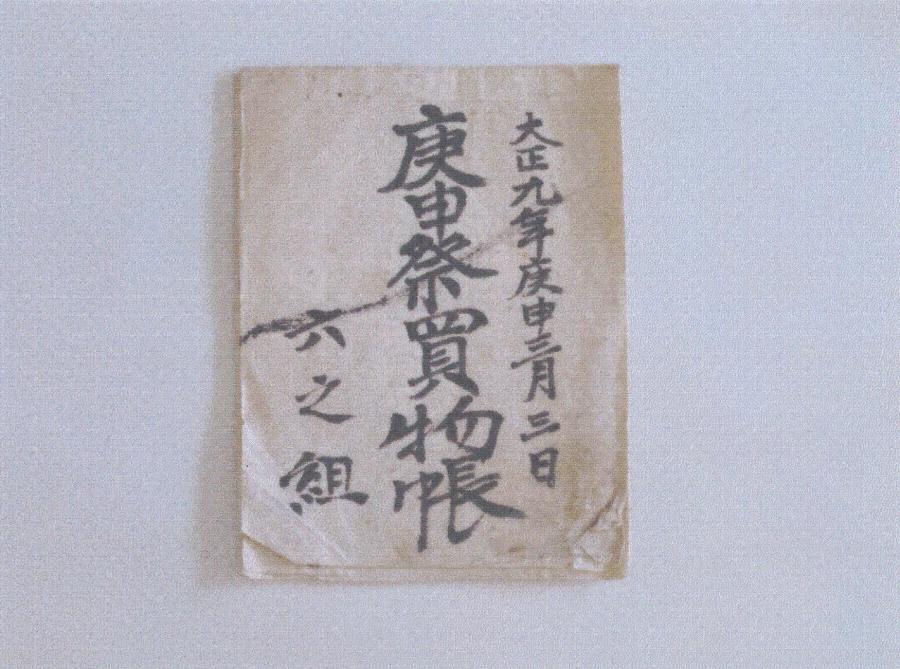 大正九年庚申三月三日
庚申祭買物帳
六之組